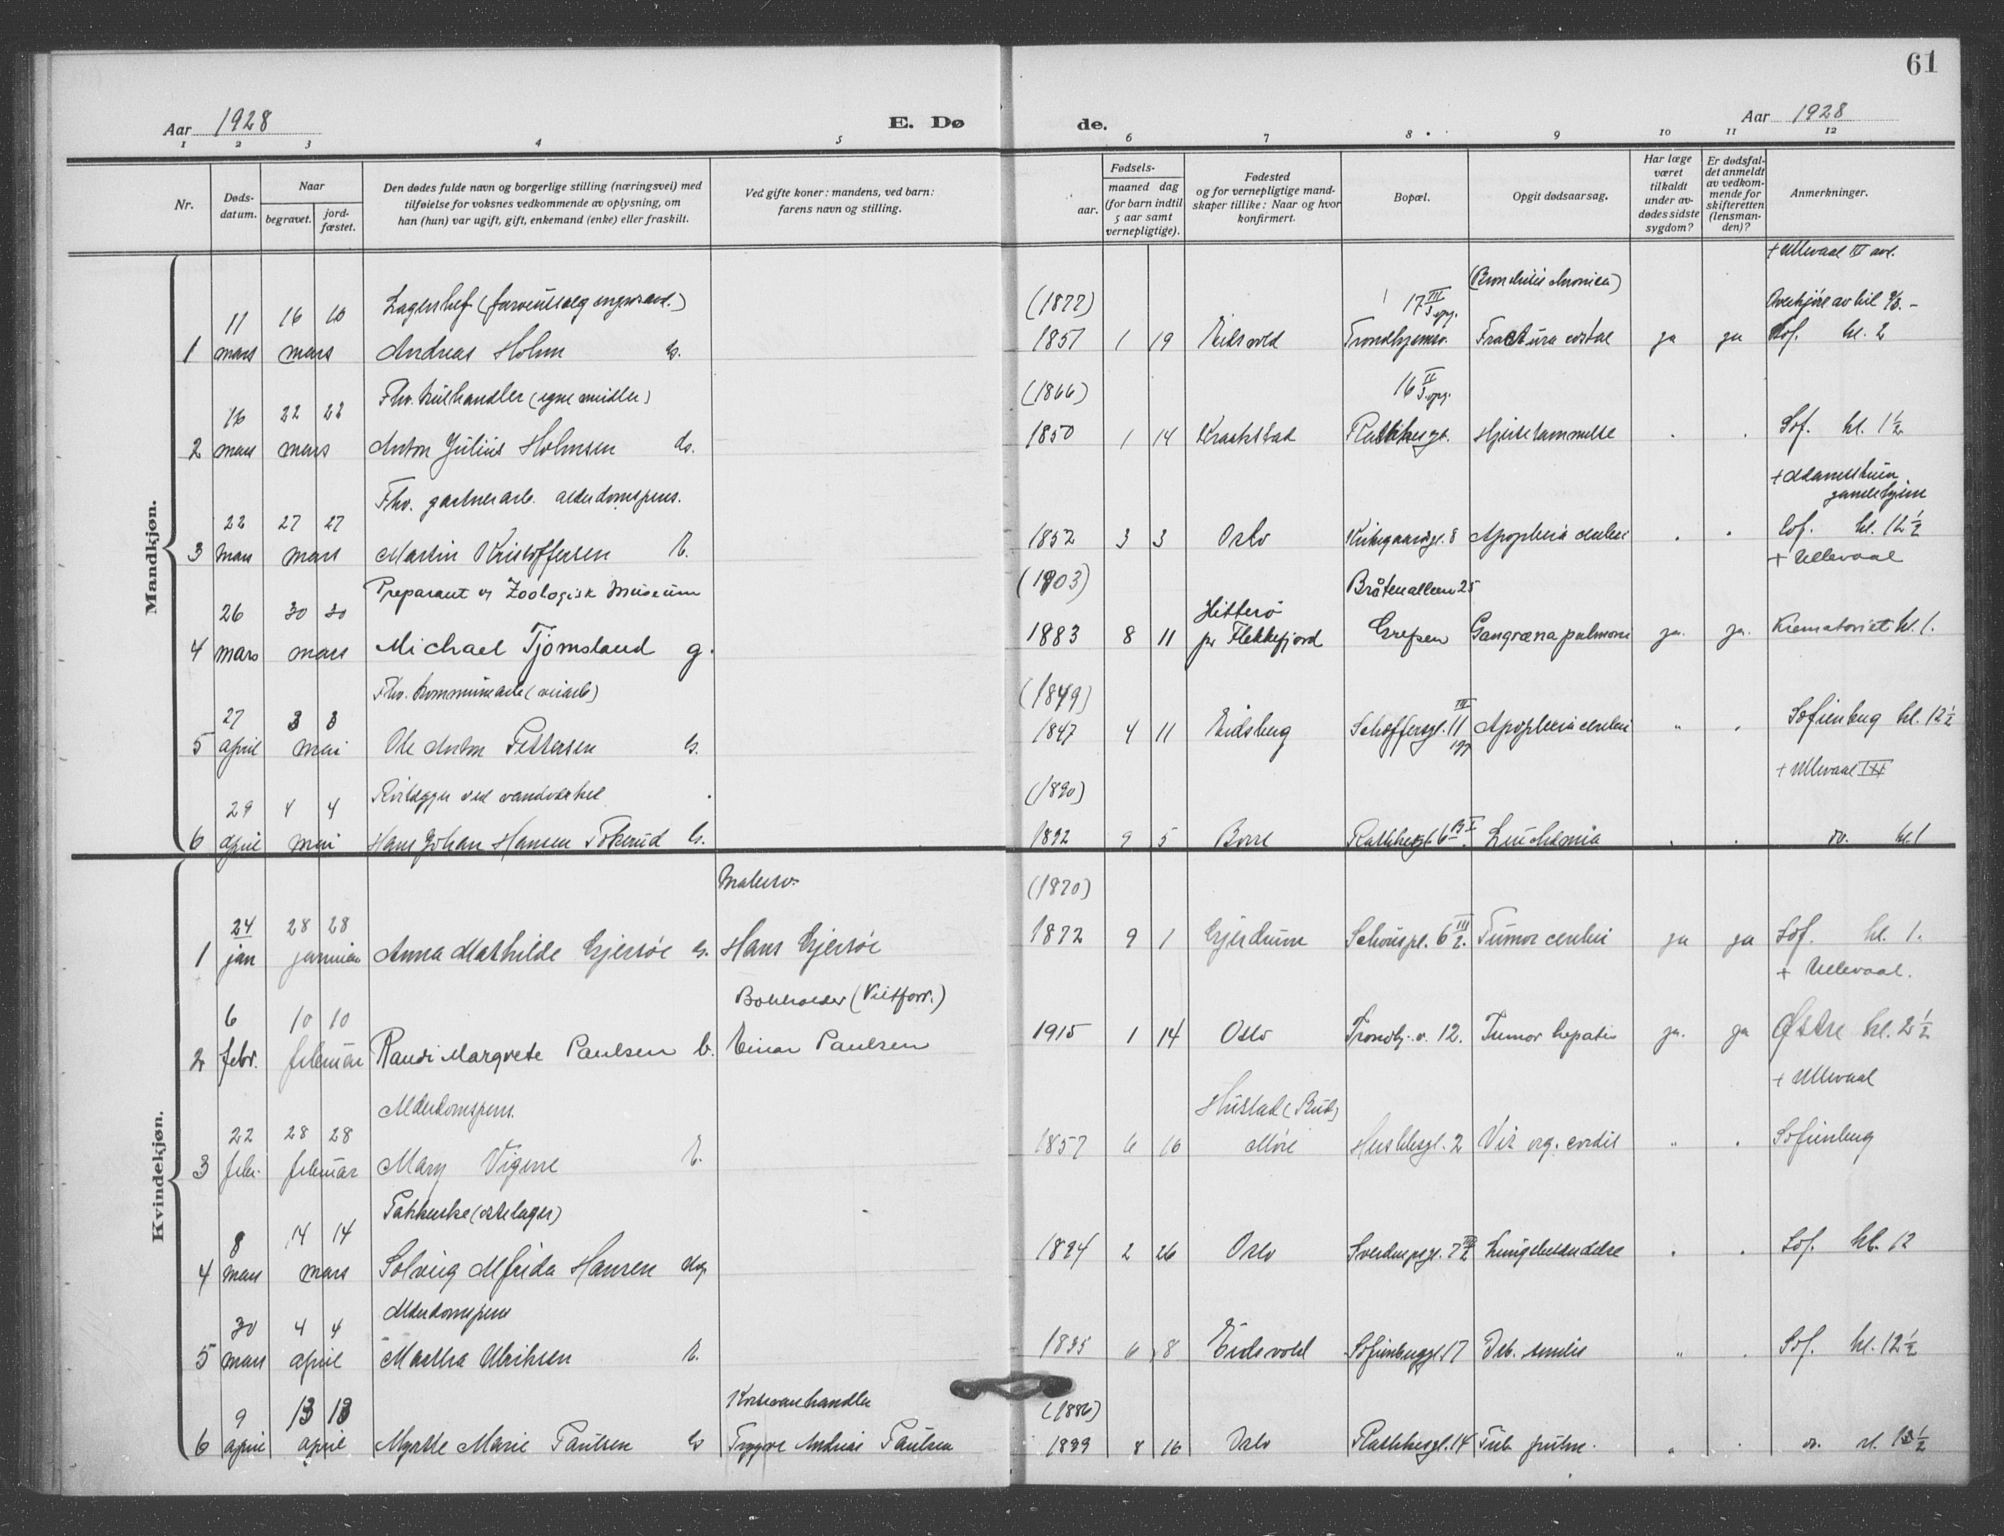 61
Aar 1928
E. Dø
de.
Aar 1928
1 2 3 4 5 6 7 8 9 10 11 12
Nr.
Døds-
datum.
Naar
begravet.
jord-
fæstet.
Den dødes fulde navn og borgerlige stilling (næringsvei) med
tilføielse for voksnes vedkommende av oplysning, om
han (hun) var ugift, gift, enkemand (enke) eller fraskilt.
Ved gifte koner: mandens, ved barn:
farens navn og stilling.
Fødsels-
aar.
maaned dag
(for barn indtil
5 aar samt
vernepligtige).
Fødested
og for vernepligtige mand-
skaper tillike: Naar og hvor
konfirmert.
Bopæl.
Opgit dødsaarsag.
Har læge
været
tilkaldt
under av-
dødes sidste
sygdom?
Er dødsfal-
det anmeldt
av vedkom-
mende for
skifteretten
(lensman-
den)?
Anmerkninger.
Mandkjøn.
+ Ullevaal IV avd.
11 16 16 Lagerchef (1877) 17 III opg. (Bronchitis chronica) Overkjøre av bil
1 mars mars Andreas Holm G. 1857 1 19 Eidsvold Trondhjemsv. Fractura costae ja ja Sof. kl. 2
Fhv. hvilhandler (egne midler) (1866) 16 II opg.
16 22 22
2 mars mars Anton Julius Holmsen G. 1850 1 14 Kraakstad Rathkesgt. Hjertelammelse " " Sof. kl. 1½
Fhv. gartnerarb. alderdomspens. + Adamstuen gamlehjem
22 27 27
3 mars mars Martin Kristoffersen E. 1852 3 3 Oslo Kirkegaardsgt. 8 Apoplexia cerebri " " Sof. kl. 12½
Preparant v Zoologisk Museum (1903) Bråtenalleen 25 + Ullevaal
26 30 30 Hitterø
4 mars mars Michael Tjomsland g. 1883 8 11 pr Flekkefjord Grefsen Gangræna pulmonis ja. ja. Krematoriet kl. 1.
Fhv. kommunearb (veiarb) (1849)
27 3 3 III
5 april mai Ole Anton Pettersen G. 1847 4 11 Eidsberg Schøffersgt. 11 opg Apoplexia cerebri " " Sofienberg kl. 12½
ved vandverket (1890) + Ullevaal III
29 4 4
6 april mai Hans Johan Hansen Tokerud G. 1892 9 5 Borre Rathkesgt. 6 B I. Leuchæmia " " do. kl 1
Kvindekjøn.
Malersv. (1870)
24 28 28
1 jan januar Anna Mathilde Gjersøe G. Hans Gjersøe 1872 9 1 Gjerdrum Schouspl. 6 III 2. Tumor cerebri ja ja Sof. kl. 1.
Bokholder (Vestfor.) + Ullevaal.
6 10 10
2 febr. februar Randi Margrete Paulsen b. Einar Paulsen 1915 1 14 Oslo Trondhj.v. 12. Tumor hepatis ja. ja Østre kl. 2½
Alderdomspens. Hustad (Bud) + Ullevaal
22 28 28
3 febr. februar Mary Vigene E. 1857 6 16 Møre Herslebsgt. 2 Vit. org. cordis " " Sofienberg
Pakkerske (ostelager)
8 14 14
4 mars mars Solveig Alfrida Hansen Ug 1894 2 26 Oslo Sverdrupsgt. 7 III 2 Lungebetændelse " " Sof. kl. 12
Alderdomspens
30 4 4
5 mars april Martha Ulriksen E. 1835 6 8 Eidsvold Sofienberggt. 17 Deb. senilis " " Sof. kl. 12½
Kortevarehandler (1886)
9 13 13
6 april april Myrtle Marie Paulsen G Trygve Andreas Paulsen 1889 8 16 Oslo Rathkesgt. 14 Tub. pulm. " " do. kl.